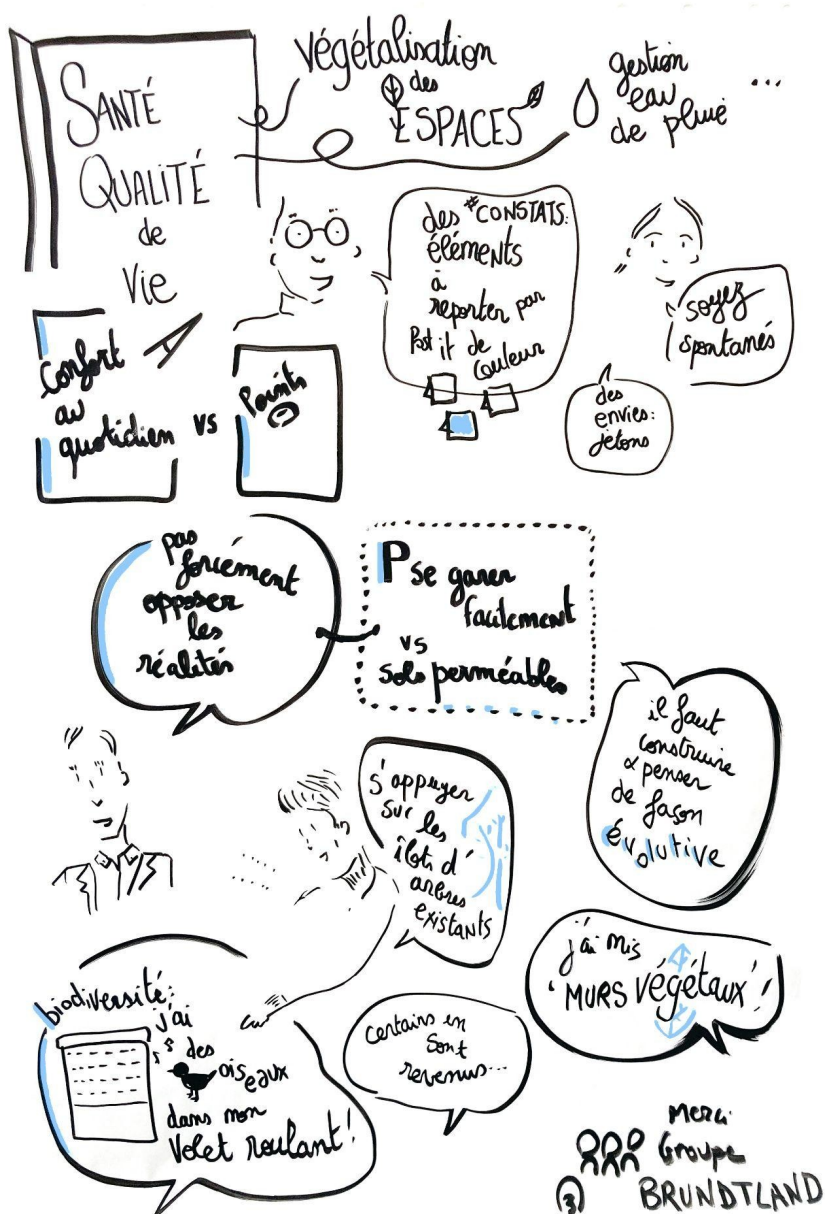 SANTÉ
QUALITÉ
de
Vie
végétalisation
des
ESPACES
gestion
eau
de pluie
...
des #CONSTATS:
éléments
à
reporter par
Post it de
couleur
soyez
spontanés
des
envies:
jetons
Confort
au
quotidien
vs
Points
pas
forcément
opposer
les
réalités
P se garer
facilement
vs
sols perméables
il faut
construire
& penser
de façon
évolutive
s'appuyer
sur les
îlots d'
arbres
existants
j'ai mis
"MURS végétaux"
biodiversité:
j'ai
des
oiseaux
dans mon
Volet roulant!
certains en
sont
revenus...
Merci
Groupe
3
BRUNDTLAND